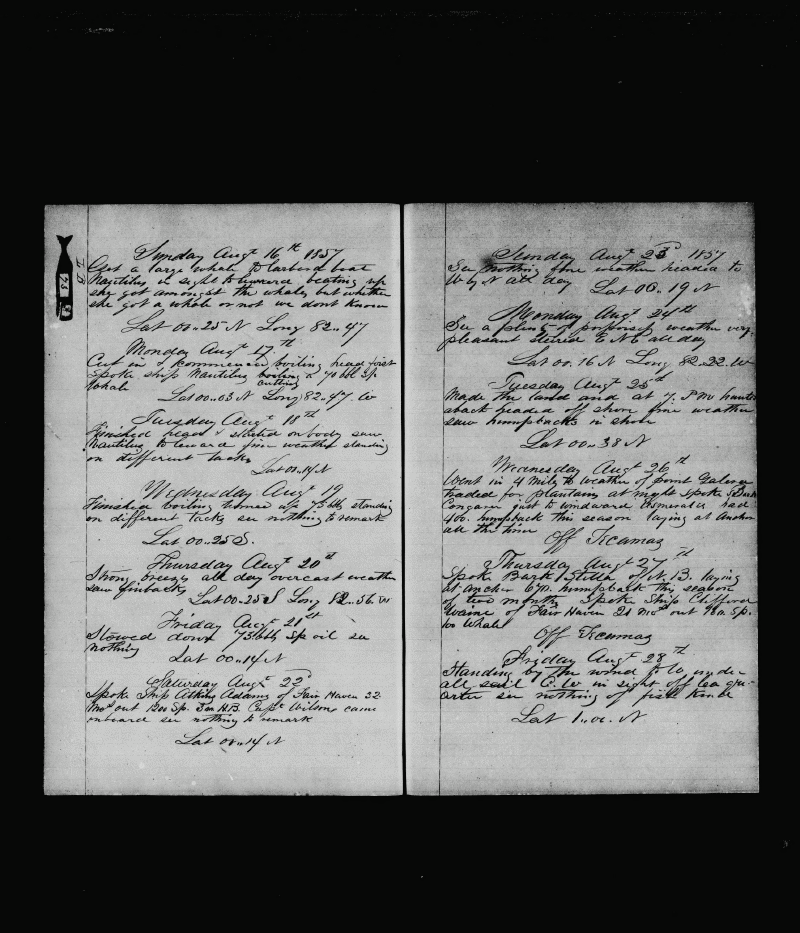 Sunday Augt 16th 1857
Got a large whale to larbord boat
Nautilus in sight to leward beating up
she got amongst the whales but whether
she got a whale or not we dont know
Lat 00..25 N Long 82..47
Monday Augt 17th
Cut in & commencin boiling head first
Spoke ship Nautilus boiling a 70 bbl Sp.
cutting
Whale
Lat 00..03 N Long 82..47. W
Tuesday Augt 18th
Finished head & started on body saw
Nautilus to leward fine weather standing
on different tacks
Lat 00..14 N
Wednesday Augt 19
Finished boiling 75 bbls standing
on different tacks see nothing to remark
Lat 00..25 S.
Thursday Augt 20th
Strong breezes all day overcast weather
saw finback
Lat 00..25 S Long 82..56. W
Friday Augt 21st
Stowed down 75 bbls Sp oil see
nothing
Lat 00..14 N
Saturday Augt 22d
Spoke Ship Adams of Fair Haven 32
mos out Sp. H.B. Capt Wilson came
onboard see nothing to remark
Lat 00..14 N
73
Sunday Augt 23d 1857
See nothing fine weather headed to
W by N all day
Lat 00..19 N
Monday Augt 24th
See a plenty of porpoises weather very
pleasant steered E N E all day
Lat 00..16 N Long 82..22. W
Tuesday Augt 25th
Made the land and at 7. P M
aback headed off shore fine weather
saw humpbacks in shore
Lat 00..38 N
Wednesday Augt 26th
Went in 4 mile to weather of point Galera
traded for plantains at night Spoke
just to windward had
400. humpback this season laying at Anchor
all the time
Off Tecamaz
Thursday Augt 27th
Spoke Bark Stella of N. B. laying
at anchor humpback this season
of two months Spoke Ship Clifford
Waine of Fair Haven 21 mos out Sp.
no Whale
Off Tecamaz
Friday Augt 28th
Standing by the wind to W under
all sail C. W in sight off lea qu-
arter see nothing of fish kind
Lat 1..00. N